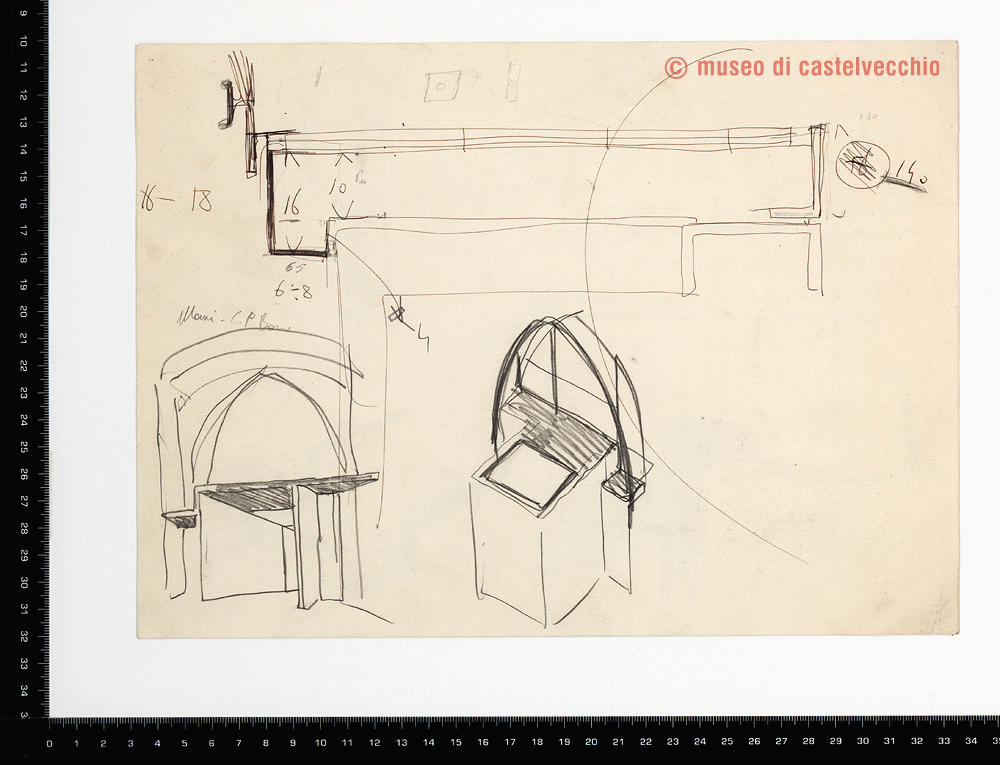 © museo di castelvecchio
140
16 – 18
16
10
65
6÷8
4
9
10
11
12
13
14
15
16
17
18
19
20
21
22
23
24
25
26
27
28
29
30
31
32
33
34
0 1 2 3 4 5 6 7 8 9 10 11 12 13 14 15 16 17 18 19 20 21 22 23 24 25 26 27 28 29 30 31 32 33 34